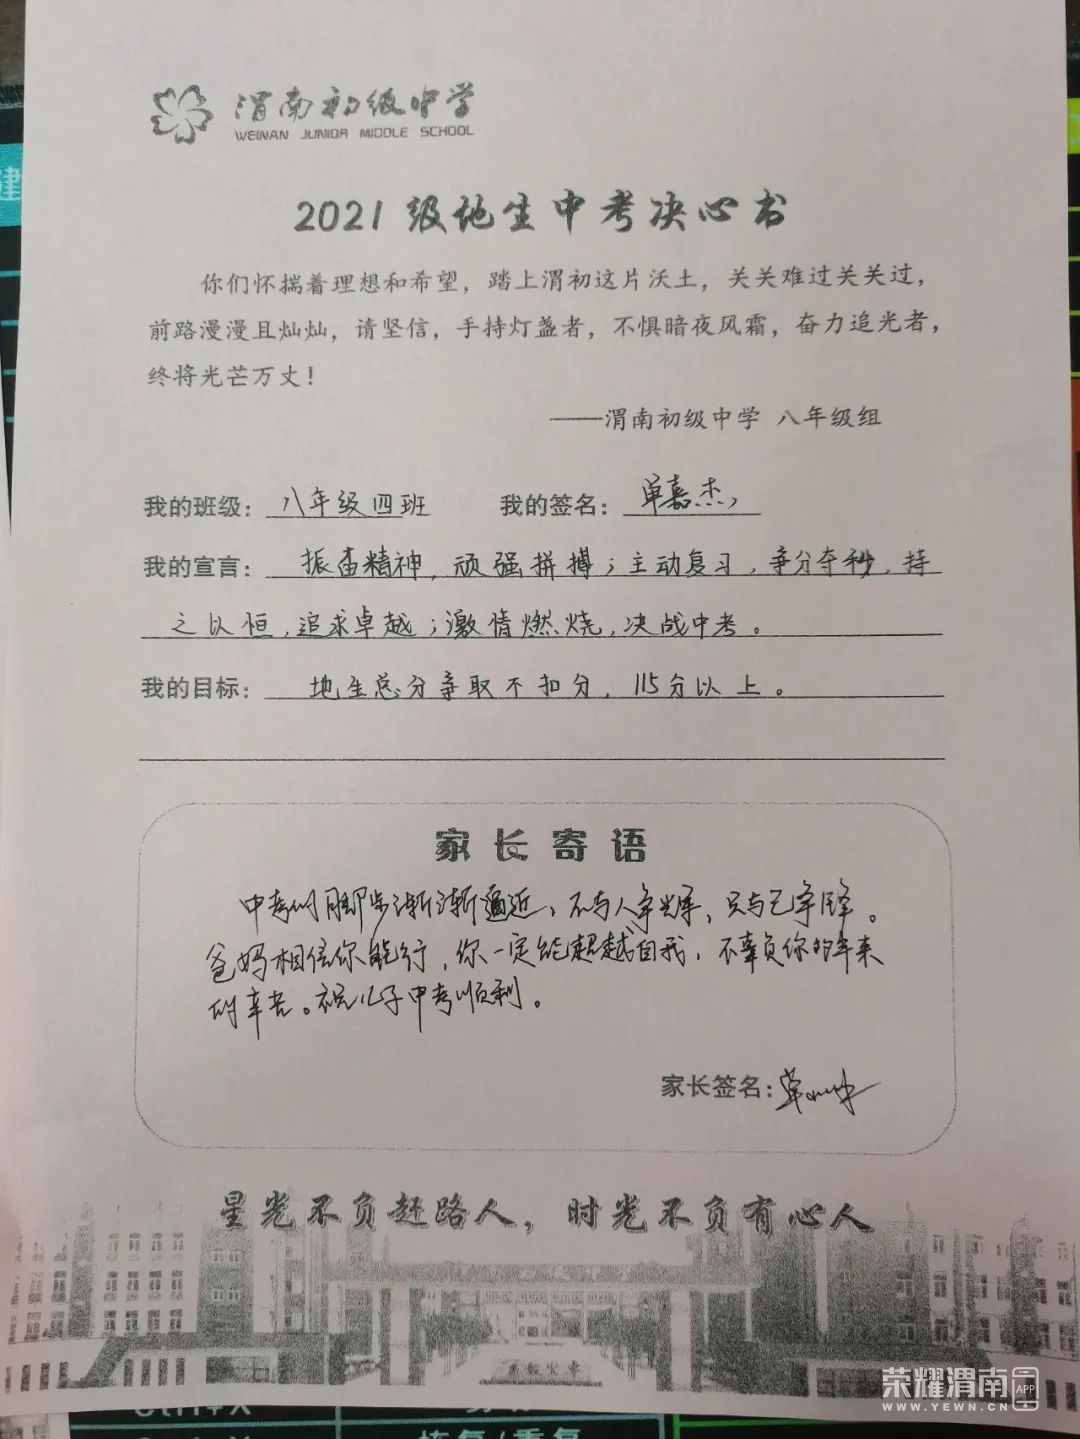 渭南初级中学
WEINAN JUNIOR MIDDLE SCHOOL
2021级地生中考决心书
你们怀揣着理想和希望，踏上渭初这片沃土，关关难过关关过，
前路漫漫且灿灿，请坚信，手持灯盏者，不惧暗夜风霜，奋力追光者，
终将光芒万丈！
——渭南初级中学 八年级组
我的班级：八年级四班 我的签名：单嘉杰
我的宣言：振奋精神，顽强拼搏；主动复习，争分夺秒，持
之以恒，追求卓越；激情燃烧，决战中考。
我的目标：地生总分争取不扣分，115分以上。
家长寄语
中考的脚步渐渐逼近，不与人争光辉，只与己争高降。
爸妈相信你能行，你一定能超越自我，不辜负你的年来
的辛苦。祝儿子中考顺利。
家长签名：
星光不负赶路人，时光不负有心人
荣耀渭南 APP
WWW.YEWN.CN
Ctrl+X
恢复/重复
建